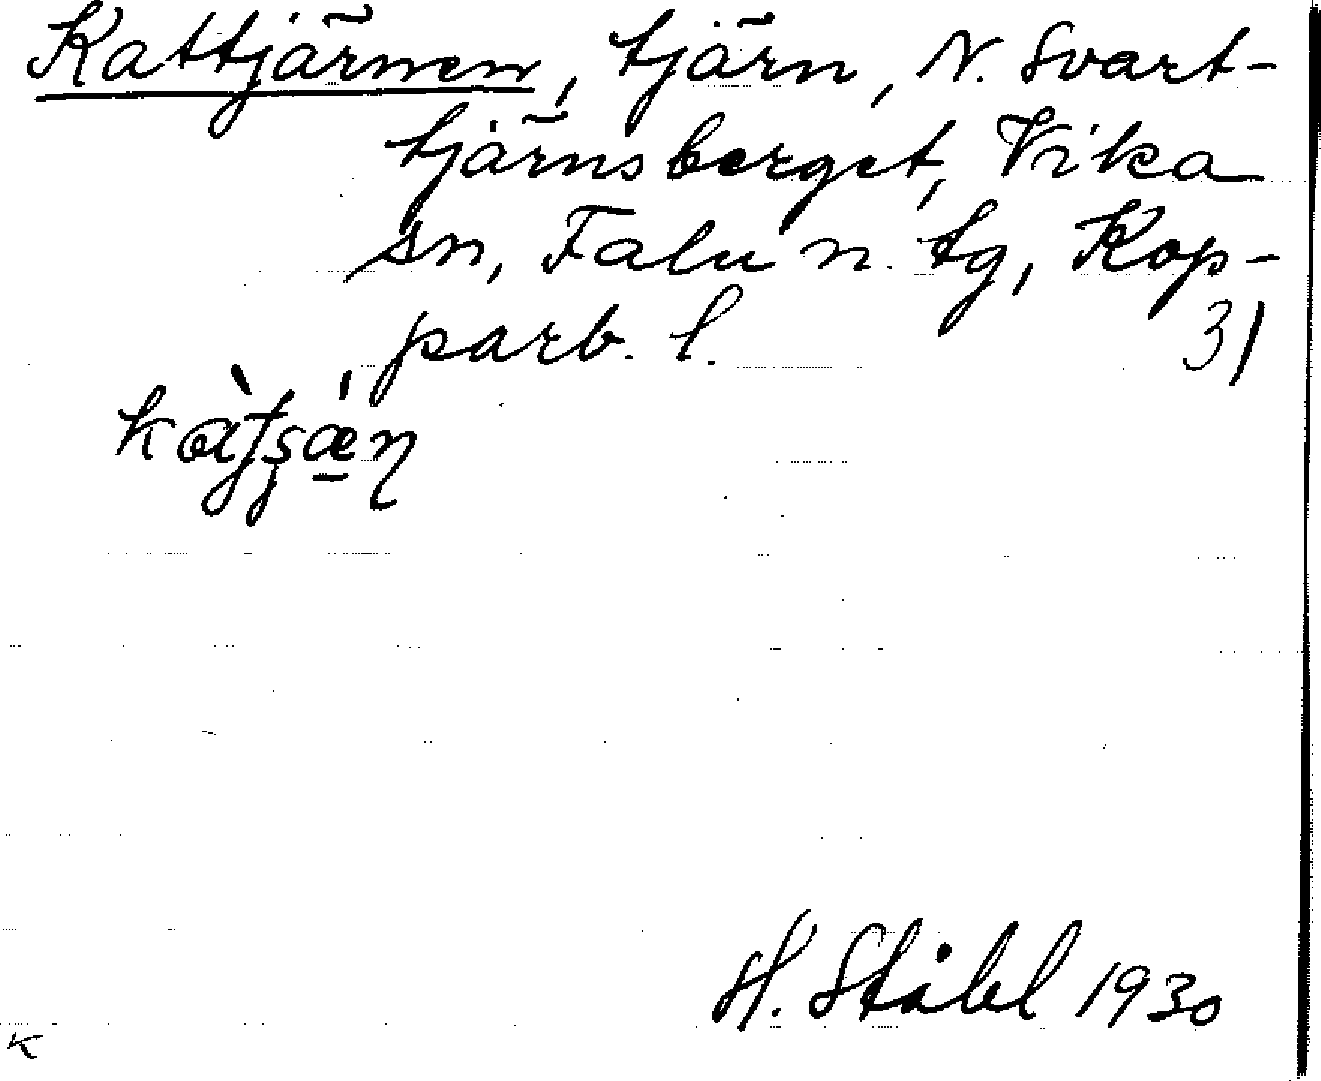 Kattjärnen, tjärn, N. Svart-
tjärnsberget, Vika
sn, Falu n. tg, Kop-
parb. l. 31
H. Ståhl 1930
K